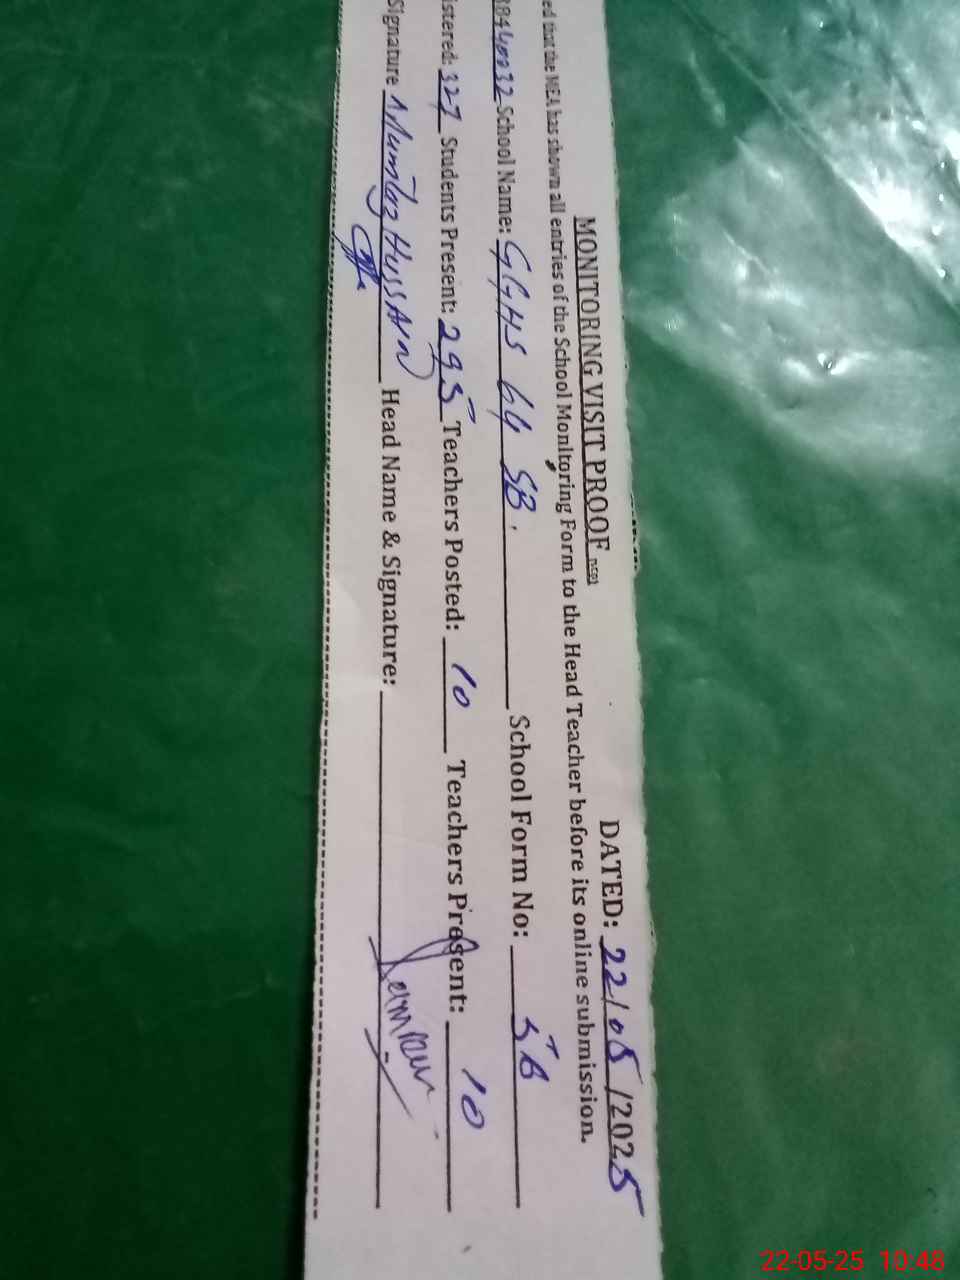 MONITORING VISIT PROOF DATED: 22/05/2025
ed that the MEA has shown all entries of the School Monitoring Form to the Head Teacher before its online submission.
School Name: GGHS 64 SB. School Form No: 5B
istered: 327 Students Present: 295 Teachers Posted: 10 Teachers Present: 10
Signature Mumtaz Hussain Head Name & Signature:
22-05-25 10:48